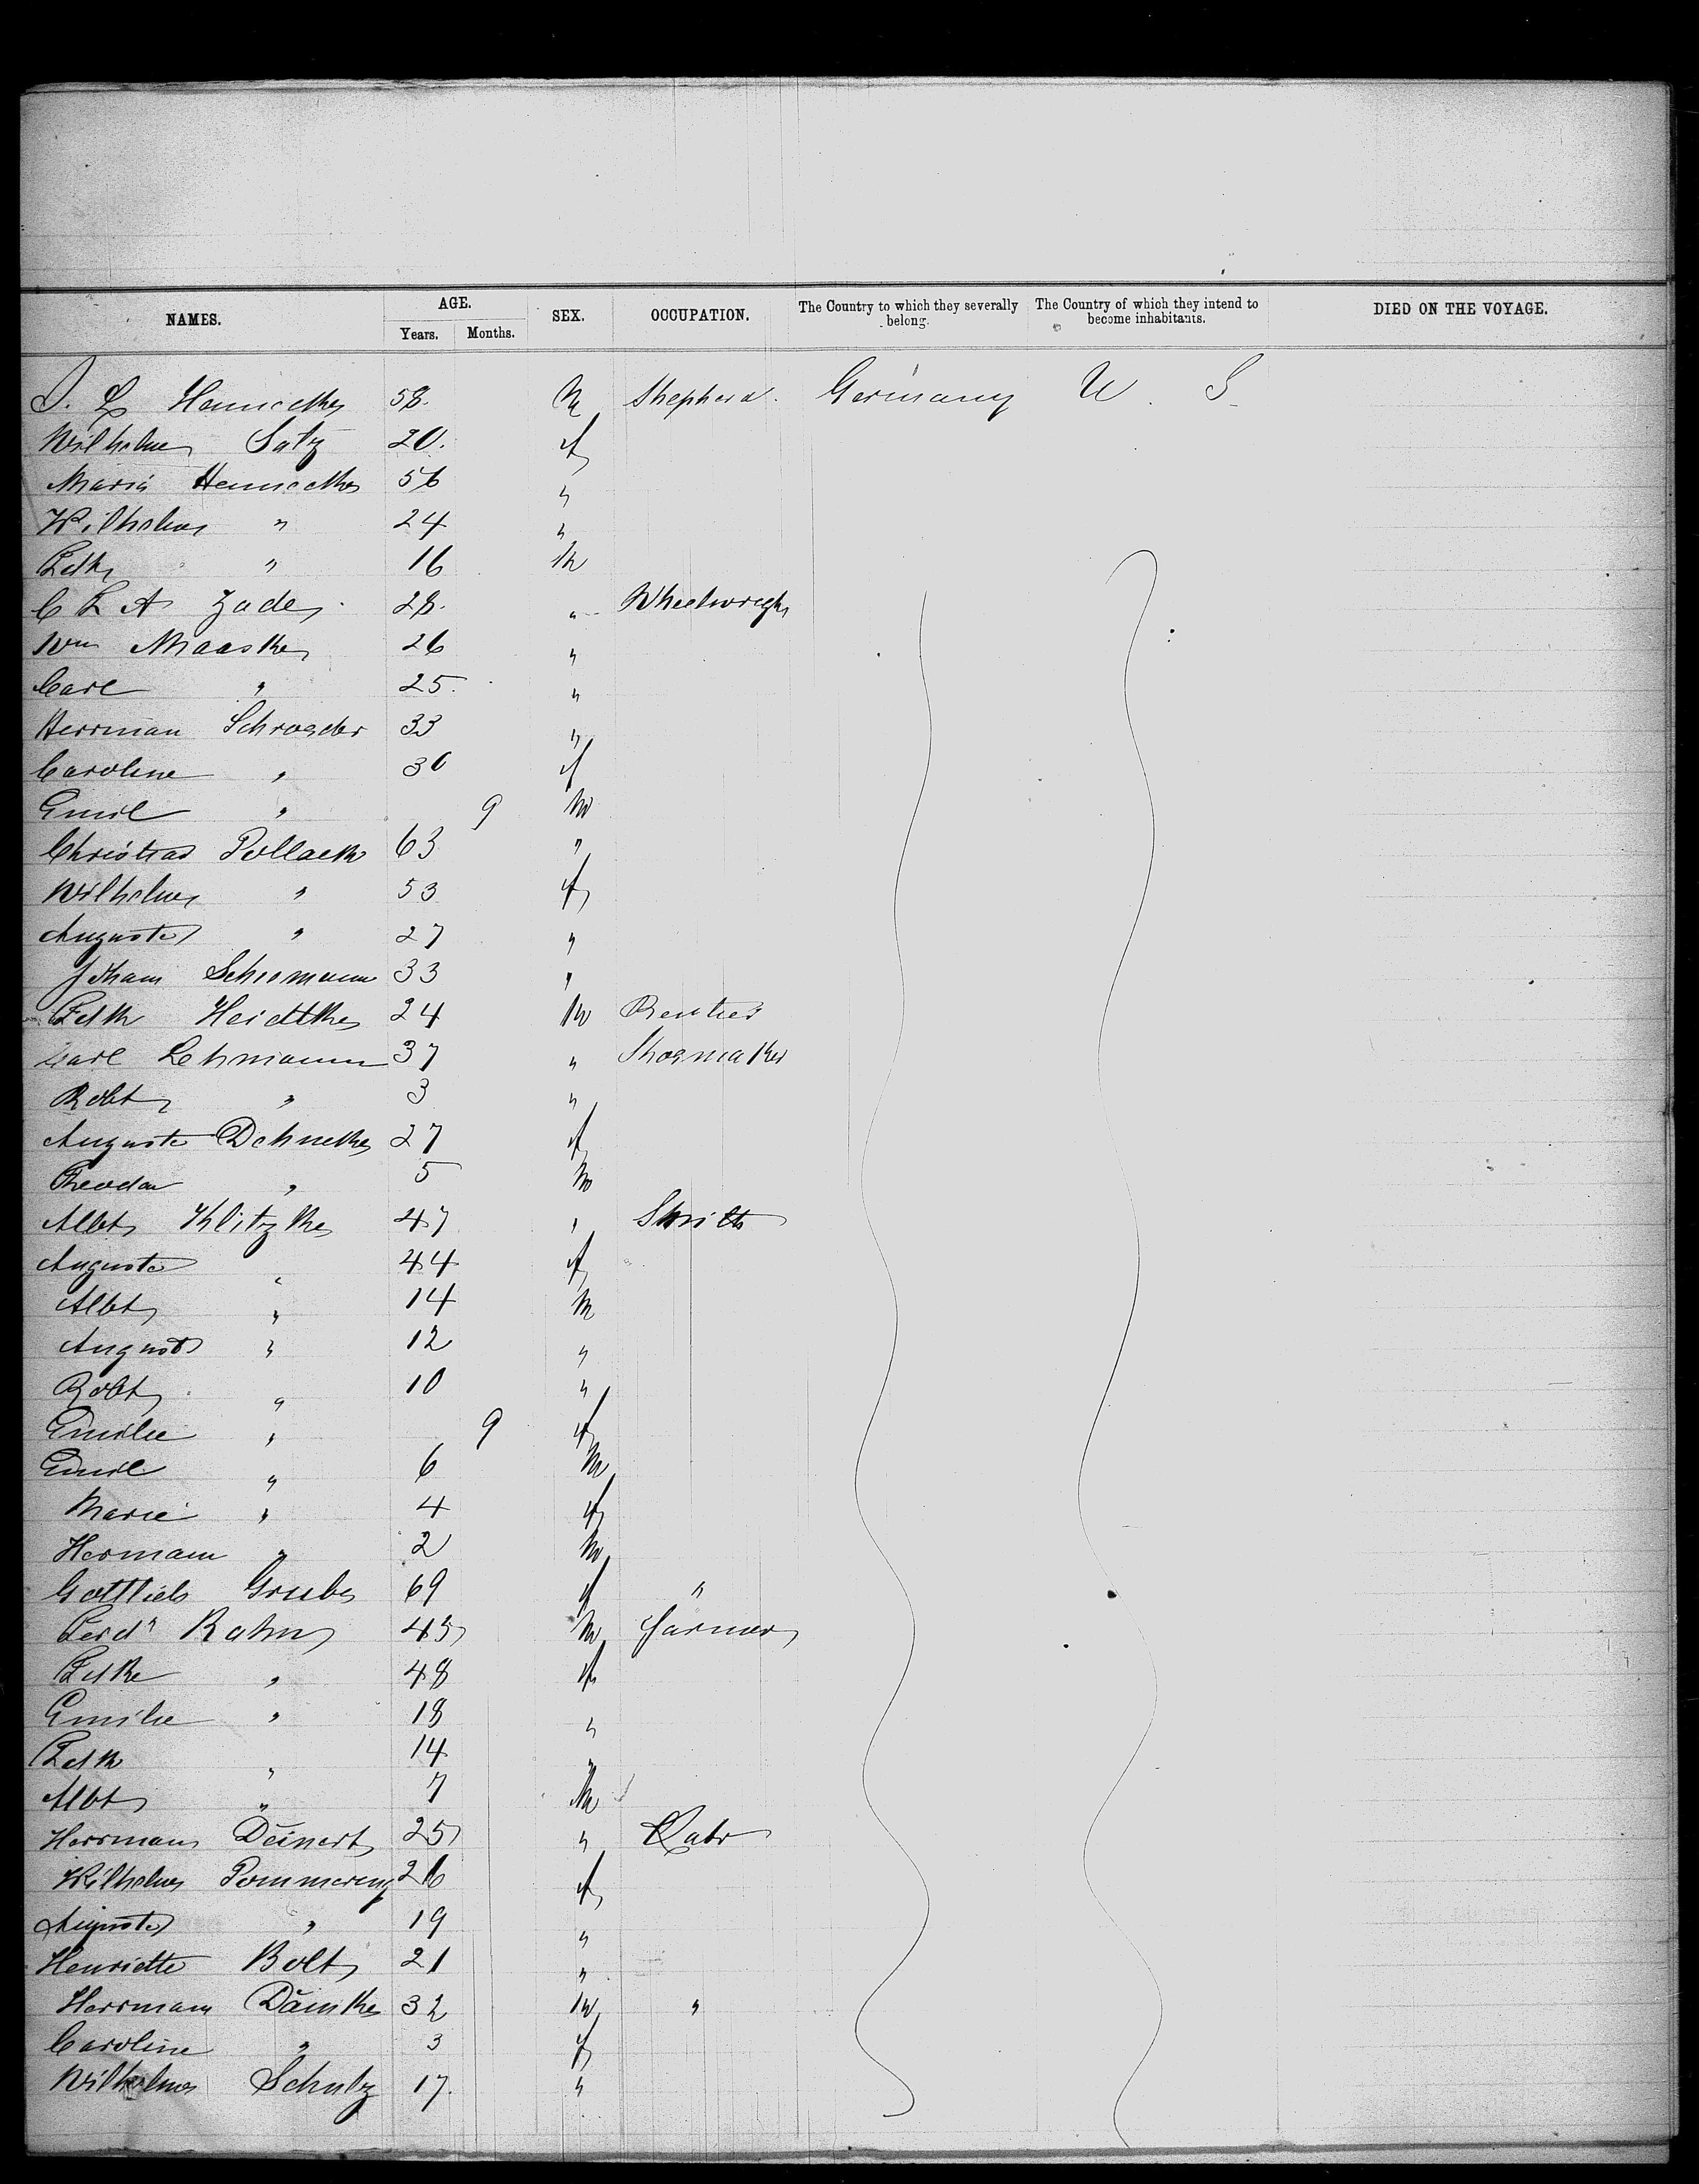 NAMES. AGE. Years. Months. SEX. OCCUPATION. The Country to which they severally belong. The Country of which they intend to become inhabitants. DIED ON THE VOYAGE.
58. M Shepherd. Germany U. S.
Wilhelm Satz 20. f
Maria 56 "
Wilhelm " 24 "
" 16 M
Zade 28. " Wheelwright
Wm Maaske 26 "
Carl " 25. "
Herrman Schroeder 33 "
Caroline " 30 f
Emil " 9 M
Christian Pollack 63 "
Wilhelm " 53 f
Auguste " 27 "
33 "
Heidtke 24 M
Carl Lehmann 37 " Shoemaker
Robt " 3 "
Auguste 27 f
Theodor " 5 M
Albt Klitzke 47 " Smith
Auguste " 44 f
Albt " 14 M
August " 12 "
Robt " 10 "
Emilie " 9 f
Emil " 6 M
Marie " 4 f
Hermann " 2 M
Gottlieb Grube 69 f "
Ferdn Rahn 45 M Farmer
" 48 f
Emilie " 18 "
" 14 "
Albt " 7 M
Herrman Deinert 25 " Labr
Wilhelm Pommerening 26 f
Auguste " 19 "
Henriette Bolt 21 "
Herrmann Dämke 32 M "
Caroline " 3 f
Wilhelm Schulz 17. "